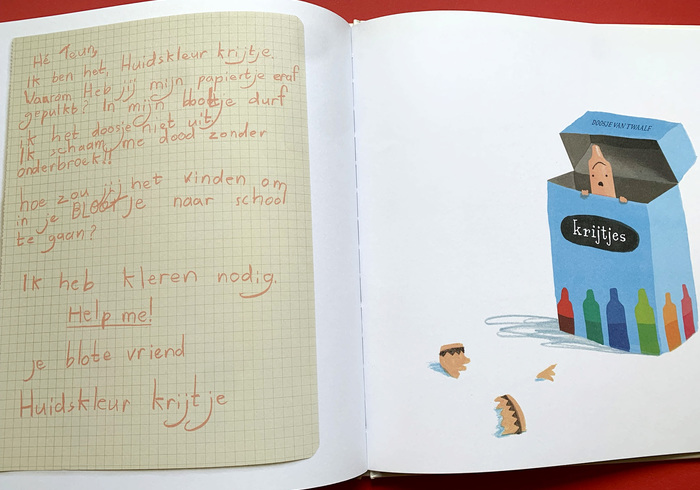 Hé Teun,
Ik ben het, Huidskleur krijtje.
Waarom Heb jij mijn papiertje eraf
gepulkt? In mijn blootje durf
ik het doosje niet uit,
Ik schaam me dood zonder
onderbroek!!
hoe zou jij het vinden om
in je BLOOTje naar school
te gaan?
Ik heb kleren nodig.
Help me!
je blote vriend
Huidskleur krijtje
DOOSJE VAN TWAALF
krijtjes